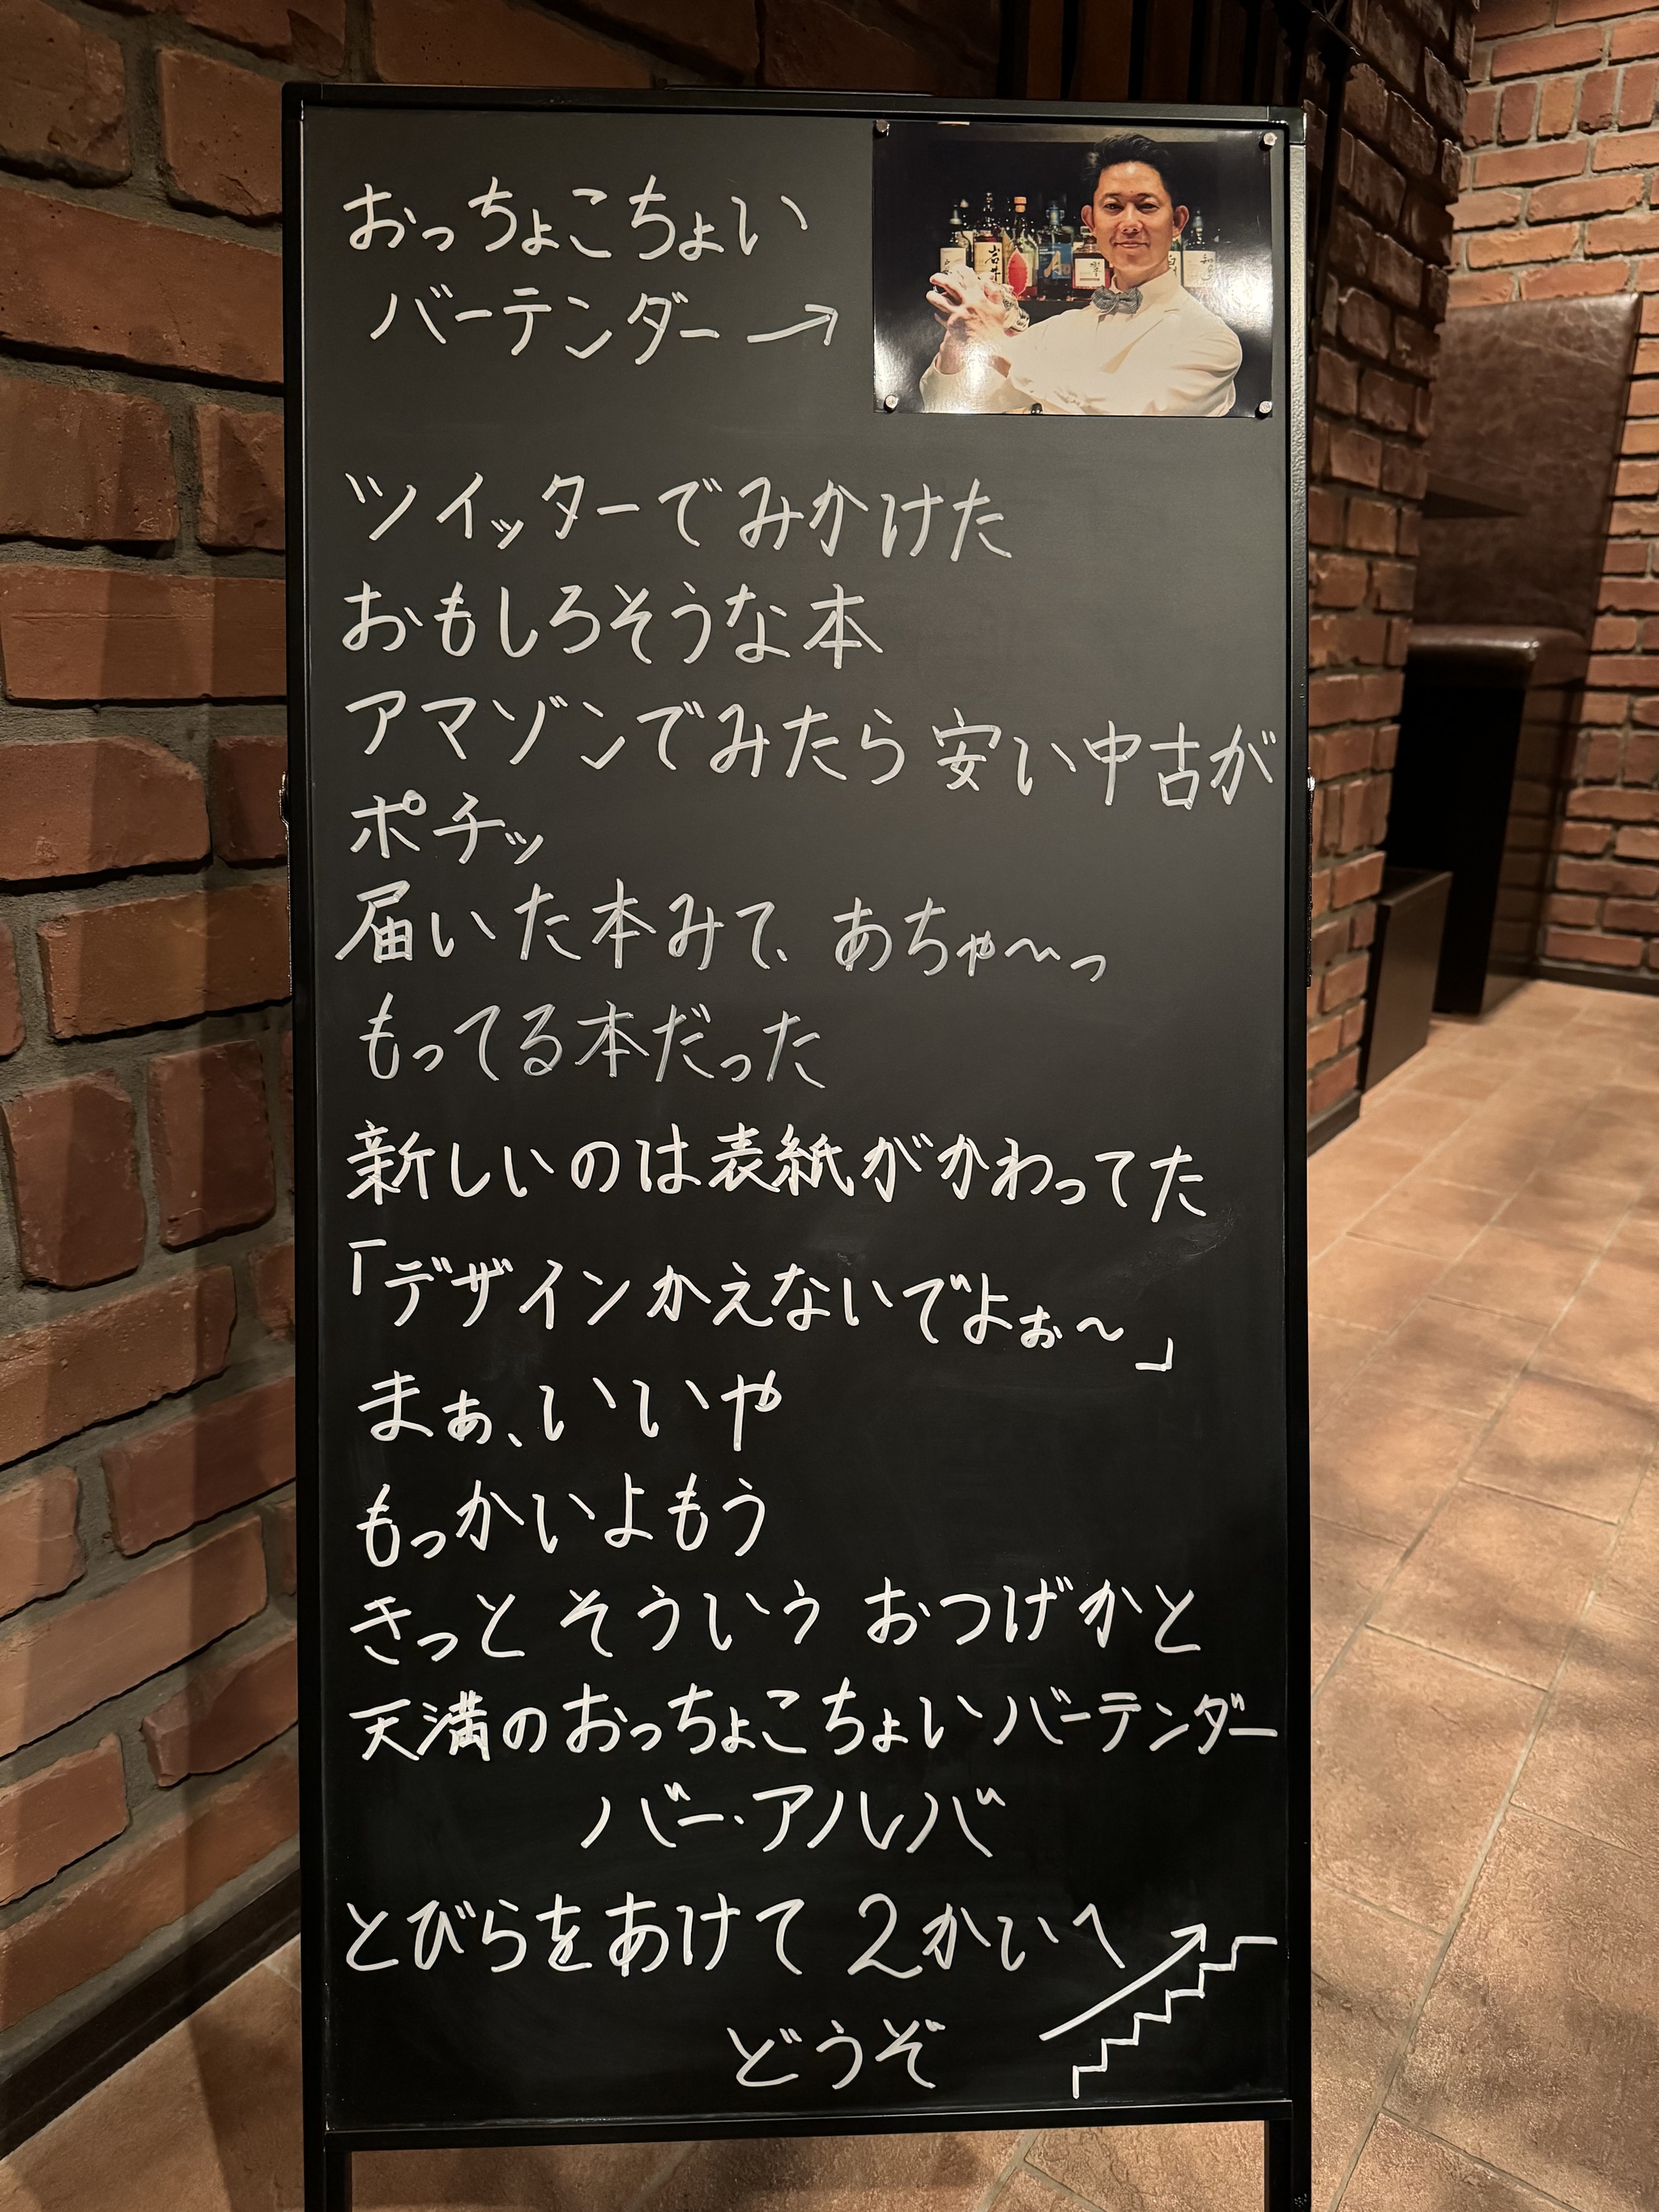 おっちょこちょい
バーテンダー→
ツイッターでみかけた
おもしろそうな本
アマゾンでみたら安い中古が
ポチッ
届いた本みて、あちゃ〜っ
もってる本だった
新しいのは表紙がかわってた
「デザインかえないでよぉ〜」
まぁ、いいや
もっかいよもう
きっと そういう おつげかと
天満のおっちょこちょいバーテンダー
バー・アルバ
とびらをあけて 2かいへ
どうぞ